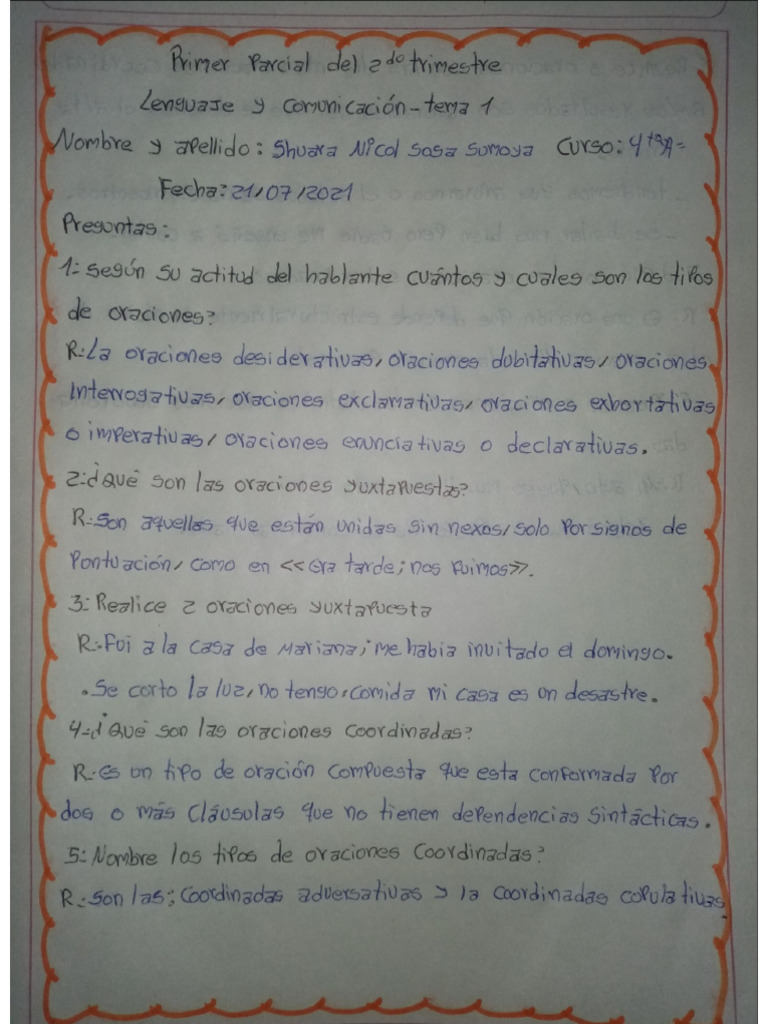 Primer Parcial del 2do trimestre
Lenguaje y comunicación - tema 1
Nombre y apellido: Shuara Nicol Sosa Sumoya Curso: 4to A=
Fecha: 21/07/2021
Preguntas:
1= según su actitud del hablante cuántos y cuales son los tipos
de oraciones?
R: La oraciones desiderativas, oraciones dubitativas, oraciones
Interrogativas, oraciones exclamativas, oraciones exhortativas
o imperativas, oraciones enunciativas o declarativas.
2=¿Qué son las oraciones yuxtapuestas?
R: Son aquellas que están unidas sin nexos, solo por signos de
Pontuación, como en <<Era tarde; nos fuimos>>.
3= Realice 2 oraciones yuxtapuesta
R: Foi a la casa de Mariana; me habia invitado el domingo.
. Se corto la luz, no tengo, comida mi casa es un desastre.
4=¿Qué son las oraciones Coordinadas?
R: Es un tipo de oración compuesta que esta conformada por
dos o más cláusulas que no tienen dependencias sintácticas.
5= Nombre los tipos de oraciones Coordinadas?
R: Son las; Coordinadas adversativas y la coordinadas copulativas.